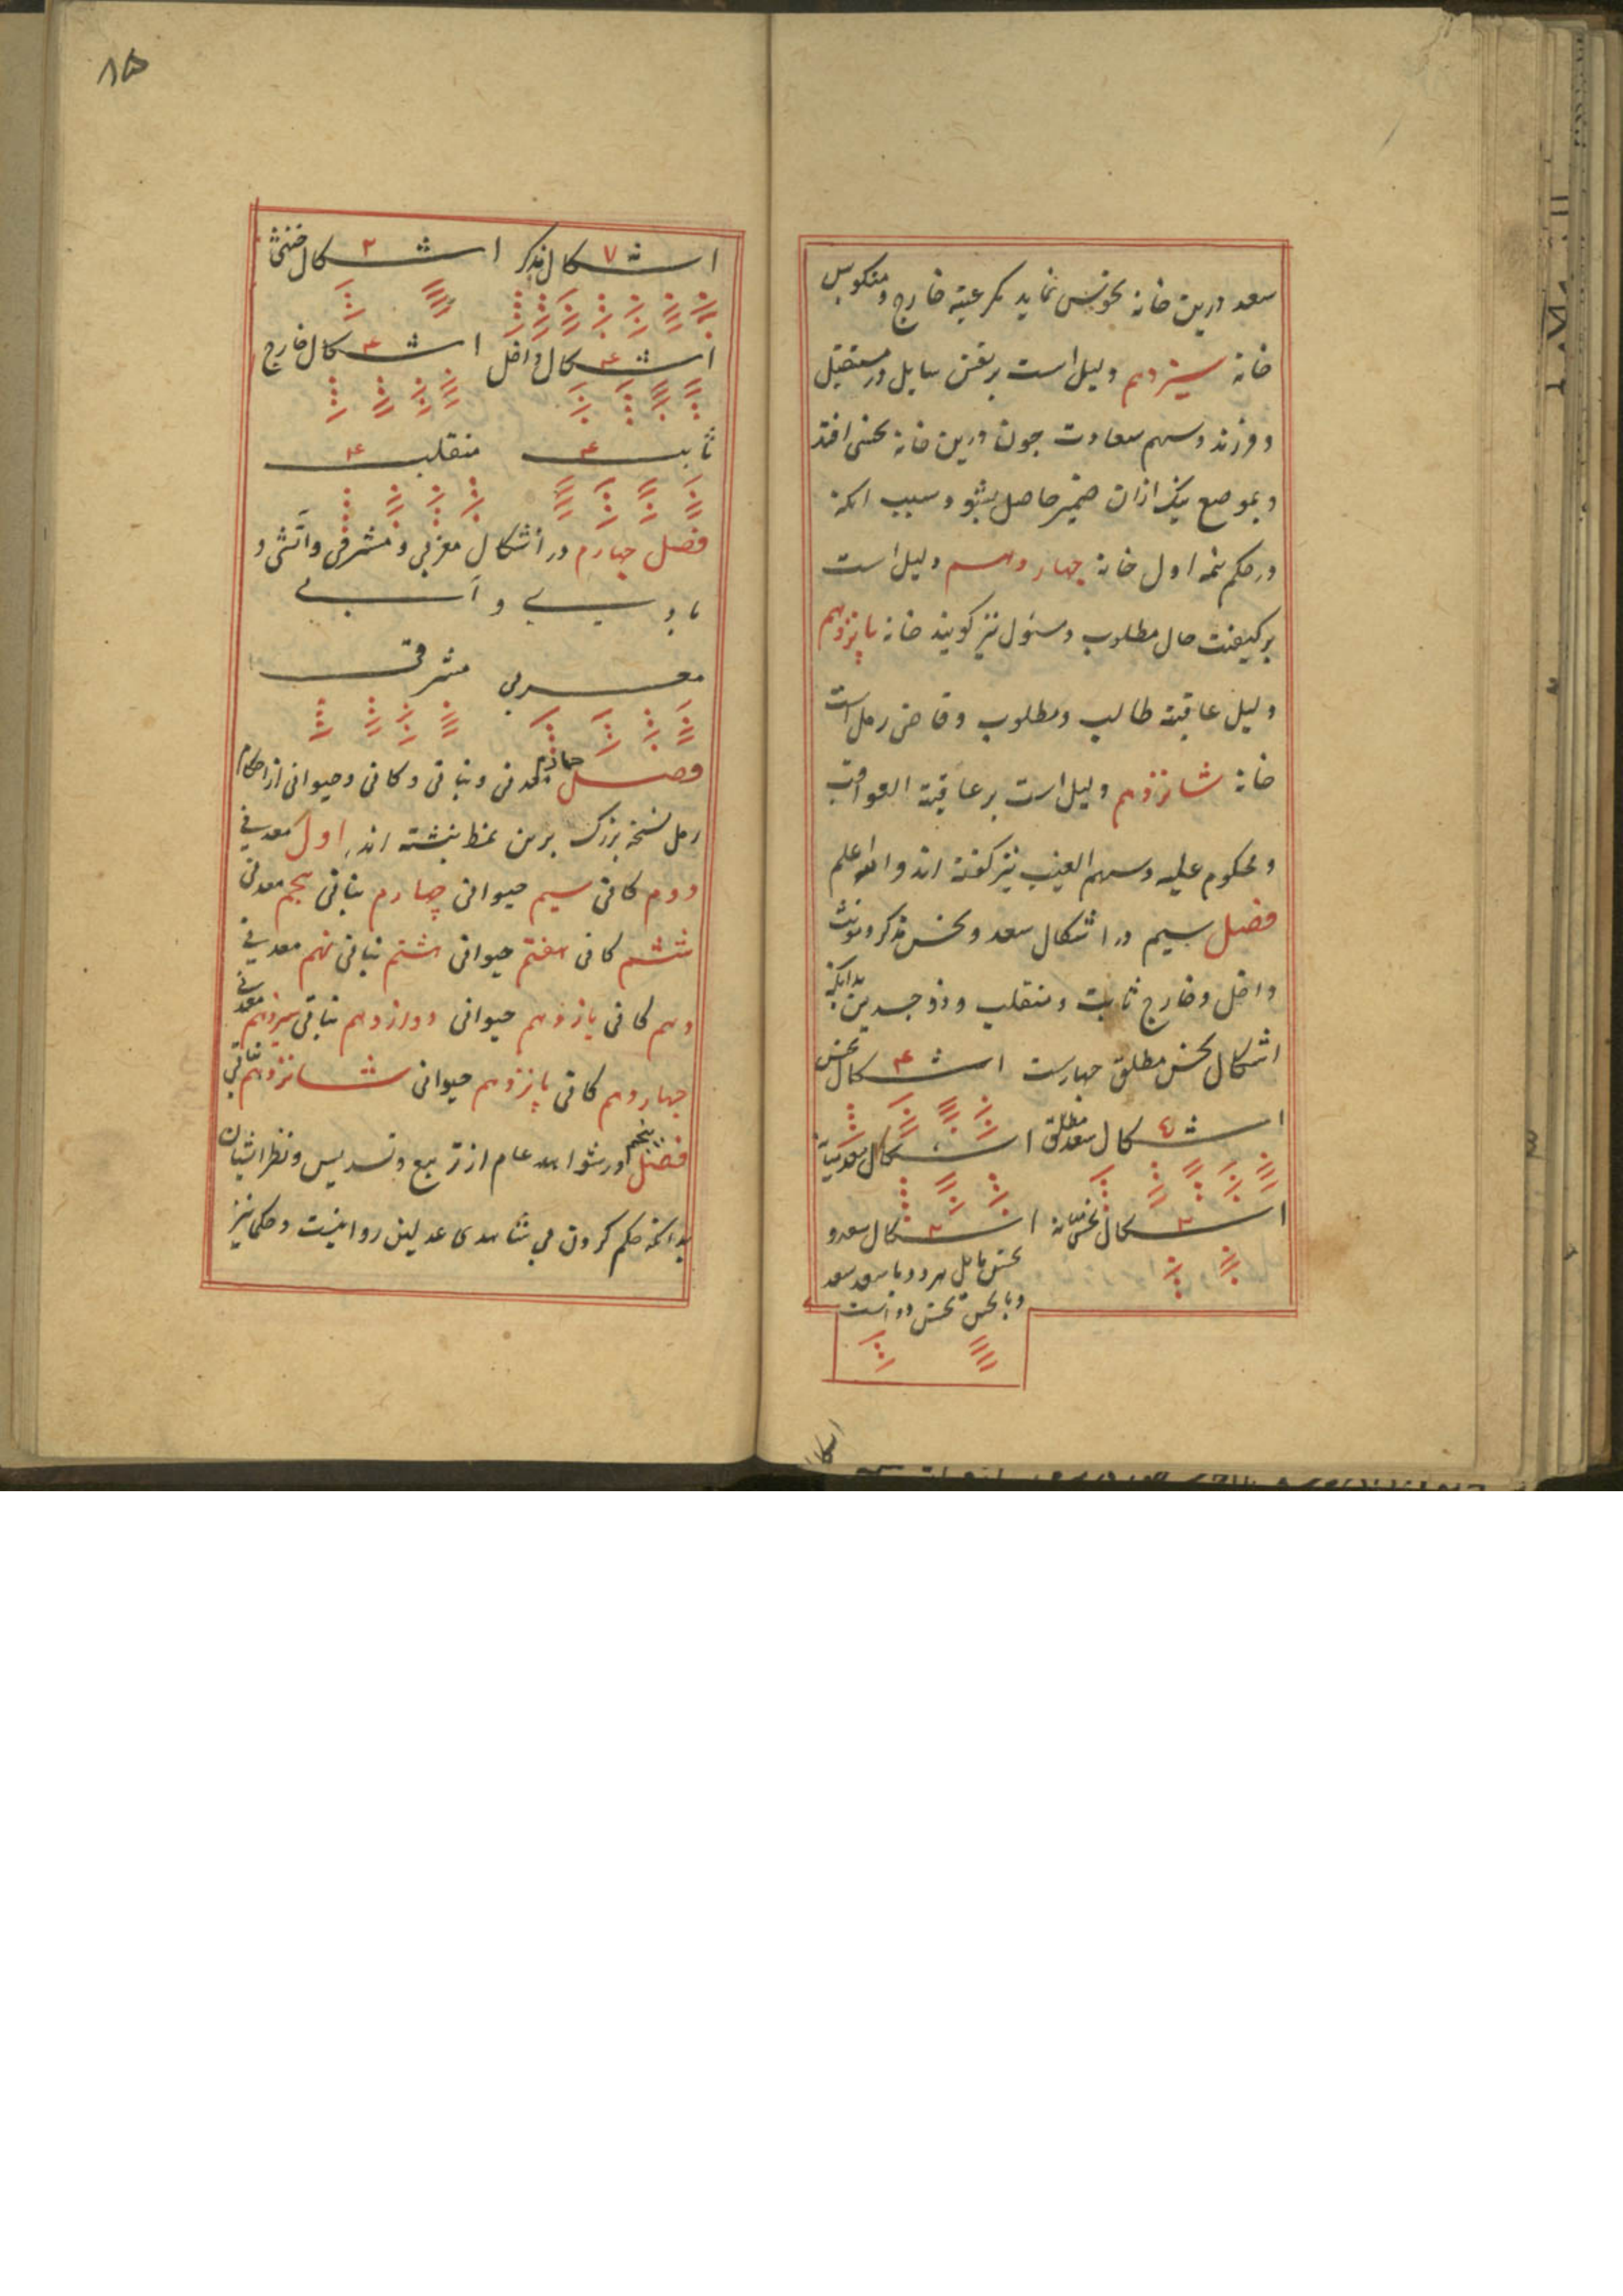 سعد درین خانه نحوس نماید مگر عتبه خارج و منکوس
خانه سیزدهم دلیل است بر نفس سایل در مستقبل
و فرزند و سهم سعادت چون درین خانه نحس افتد
و بموضع یک ازان ضمیر حاصل بشو و سبب انکه
در حکم تتمه اول خانه چهاردهم دلیل است
بر کیفیت حال مطلوب و مسئول نیز کویند خانه پانزدهم
دلیل عاقبة طالب و مطلوب و قاضی رمل است
خانه شانزدهم دلیل است بر عاقبة العواقب
و محکوم علیه و سهم الغیب نیز کفته اند والله اعلم
فصل سیم در اشکال سعد و نحس مذکر و مونث
داخل و خارج ثابت و منقلب و ذو جسدین بدانکه
اشکال نحس مطلق چهارست اشکال نحس ۴
اشکال سعد مطلق ۴ اشکال سعد
اشکال نحس ۲ اشکال سعد و ۲
نحس مایل هر دو با سعد سعد
و با نحس نحس دو است
۸۵
اشکال مذکر ۷ اشکال خنثی ۲
اشکال داخل ۴ اشکال خارج ۴
ثابت ۴ منقلب ۴
فصل چهارم در اشکال مغربی و مشرقی و آتشی و
بادی و آبی
مغربی مشرقی
فصل معدنی و نباتی و کانی و حیوانی از احکام
رمل نسخه بزرک برین نمط نبشته اند اول معدنی
دوم کانی سیم حیوانی چهارم نباتی پنجم معدنی
ششم کانی هفتم حیوانی هشتم نباتی نهم معدنی
دهم کانی یازدهم حیوانی دوازدهم نباتی سیزدهم معدنی
چهاردهم کانی پانزدهم حیوانی شانزدهم نباتی
فصل پنجم در شواهد عام از تربیع و تسدیس و نظر اشیان
بدانکه حکم کردن بی شاهدی عدلین روا نیست و حکما نیز